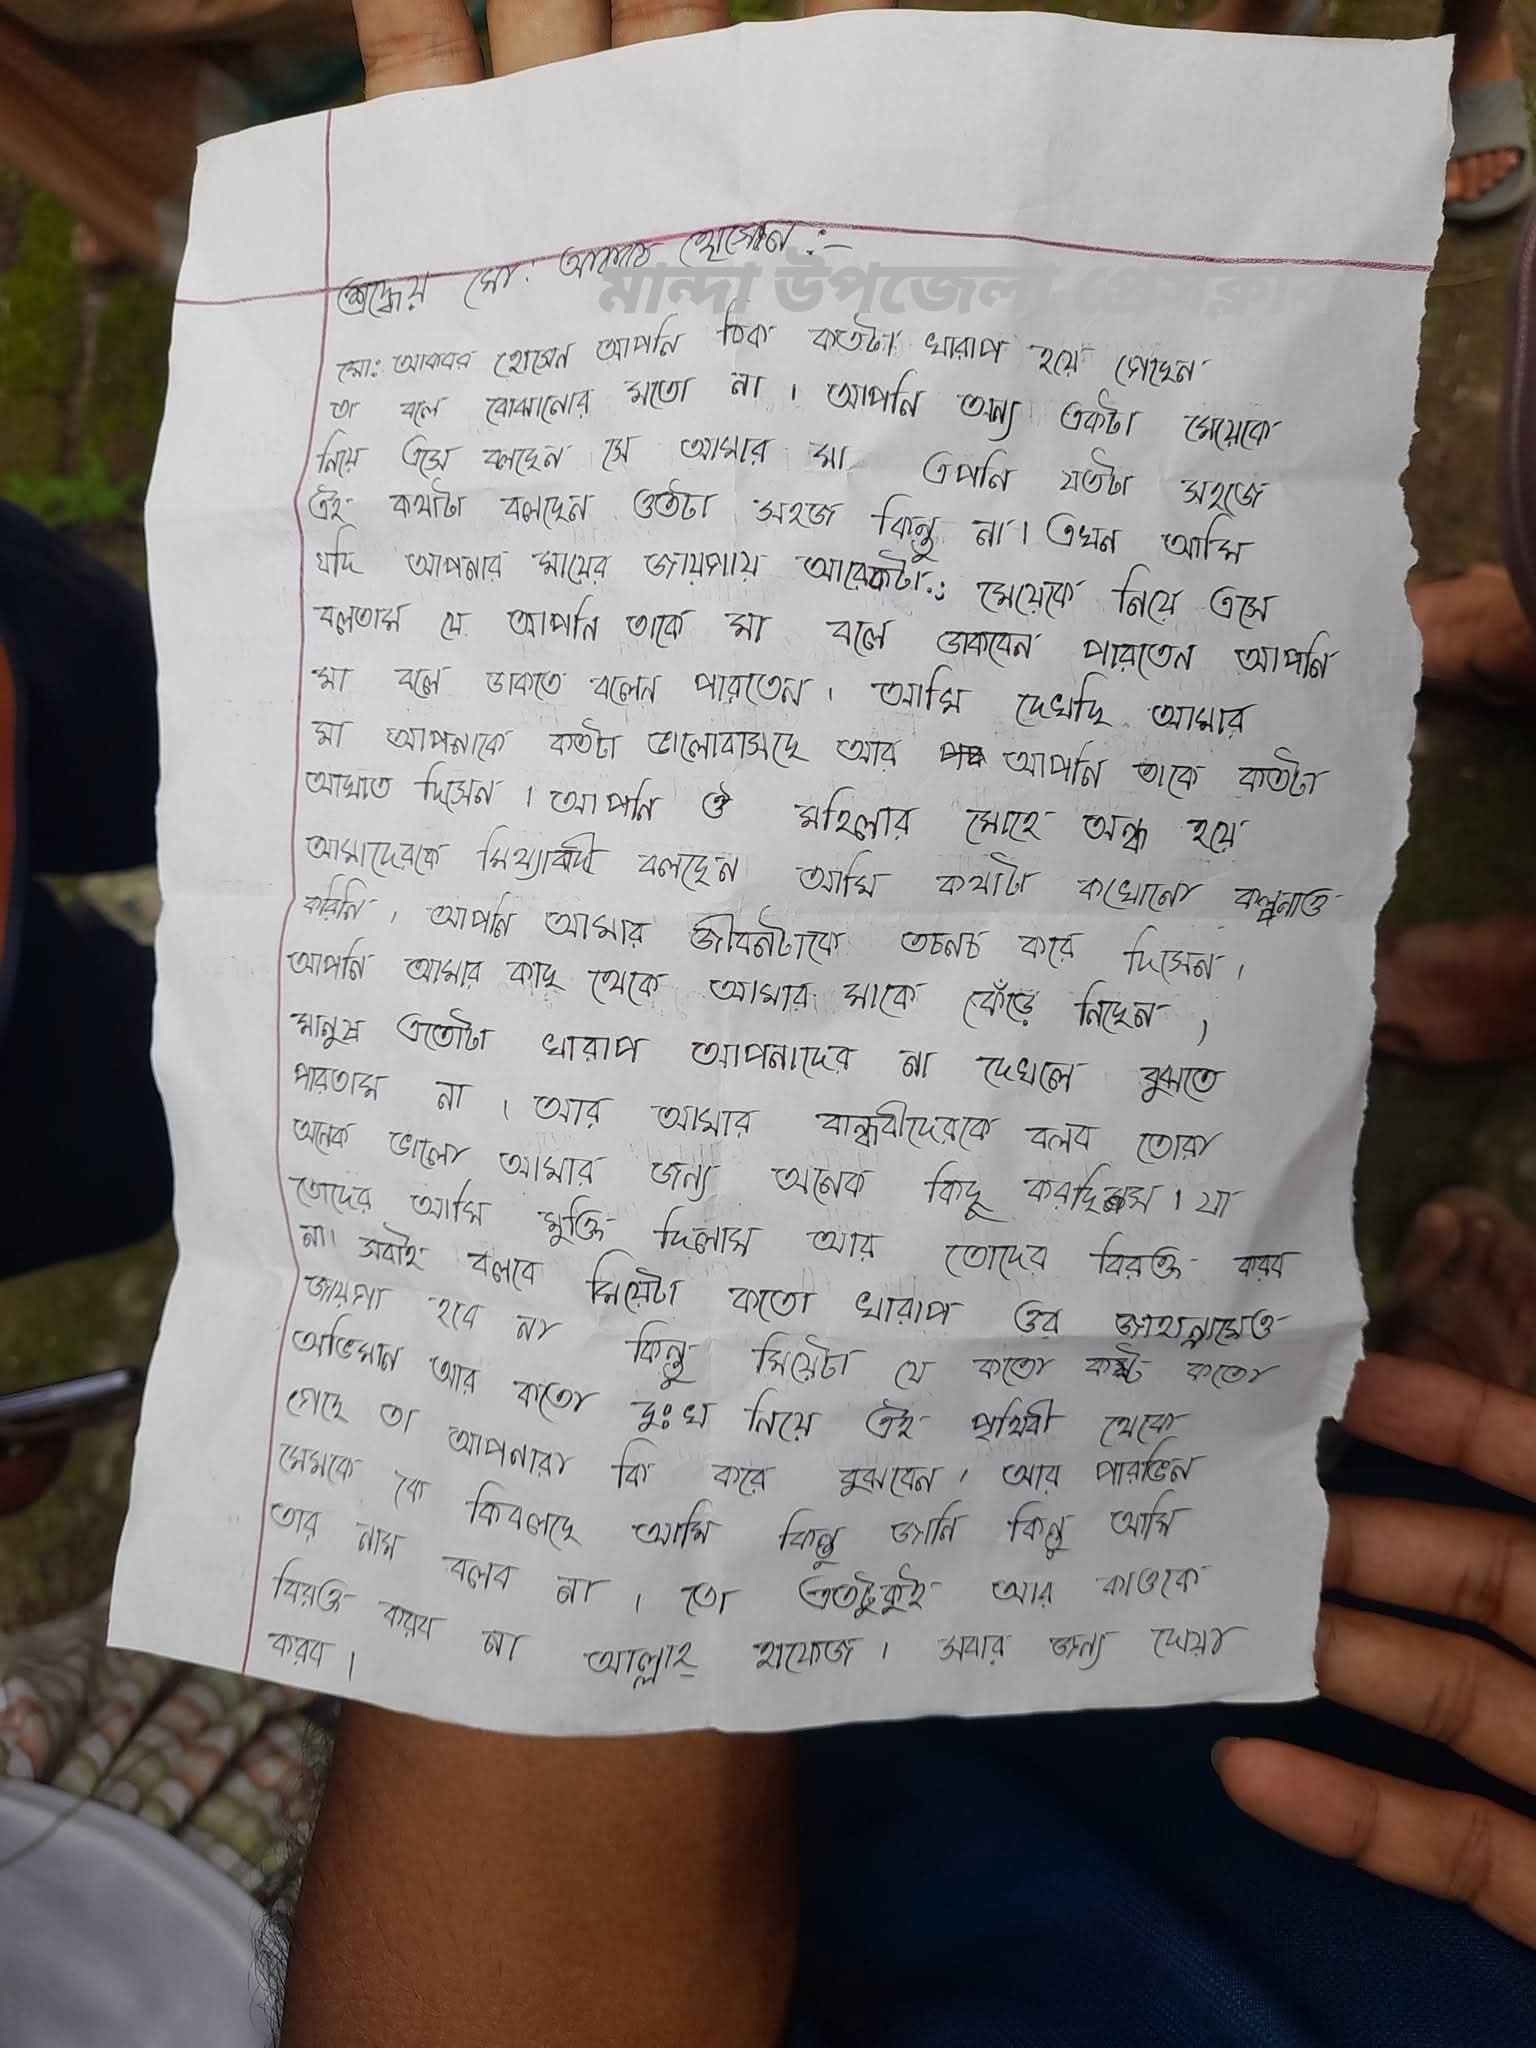 শ্রদ্ধেয় মো: আকবর হোসেন :-
মান্দা উপজেলা প্রেসক্লাব
মো: আকবর হোসেন আপনি ঠিক কতটা খারাপ হয়ে গেছেন
তা বলে বোঝানোর মতো না । আপনি অন্য একটা মেয়েকে
নিয়ে এসে বলছেন সে আমার মা এপনি যতটা সহজে
এই কথাটা বলছেন ওতটা সহজ কিন্তু না। এখন আমি
যদি আপনার মায়ের জায়গায় আরেকটা.: মেয়েকে নিয়ে এসে
বলতাম যে আপনি তাকে মা বলে ডাকবেন পারতেন আপনি
মা বলে ডাকতে বলেন পারতেন । আমি দেখছি আমার
মা আপনাকে কতটা ভালোবাসছে আর আপনি তাকে কতটা
আঘাত দিসেন । আপনি ঔ মহিলার মোহে অন্ধ হয়ে
আমাদেরকে মিথ্যাবাদী বলছেন আমি কথাটা কখোনো কল্পনাও
করিনি । আপনি আমার জীবনটাকে তচনচ করে দিসেন ।
আপনি আমার কাছ থেকে আমার মাকে কেঁড়ে নিছেন ,
মানুষ এতোটা খারাপ আপনাদের না দেখলে বুঝতে
পারতাম না । আর আমার বান্ধবীদেরকে বলব তোরা
অনেক ভালো আমার জন্য অনেক কিছু করছিলাস । যা
তোদের আমি মুক্তি দিলাম আর তোদের বিরক্ত করব
না। সবাই বলবে মিয়েটা কতো খারাপ ওর জাহান্নামেও
জায়গা হবে না কিন্তু মিয়েটা যে কতো কষ্ট কতো
অভিমান আর কতো দুঃখ নিয়ে এই পৃথিবী থেকে
গেছে তা আপনারা কি করে বুঝবেন । আর পারভিন
মেমকে কে কিবলছে আমি কিন্তু জানি কিন্তু আমি
তার নাম বলব না । তো এতটুকুই আর কাওকে
বিরক্ত করব না আল্লাহ্ হাফেজ । সবার জন্য দোয়া
করব ।